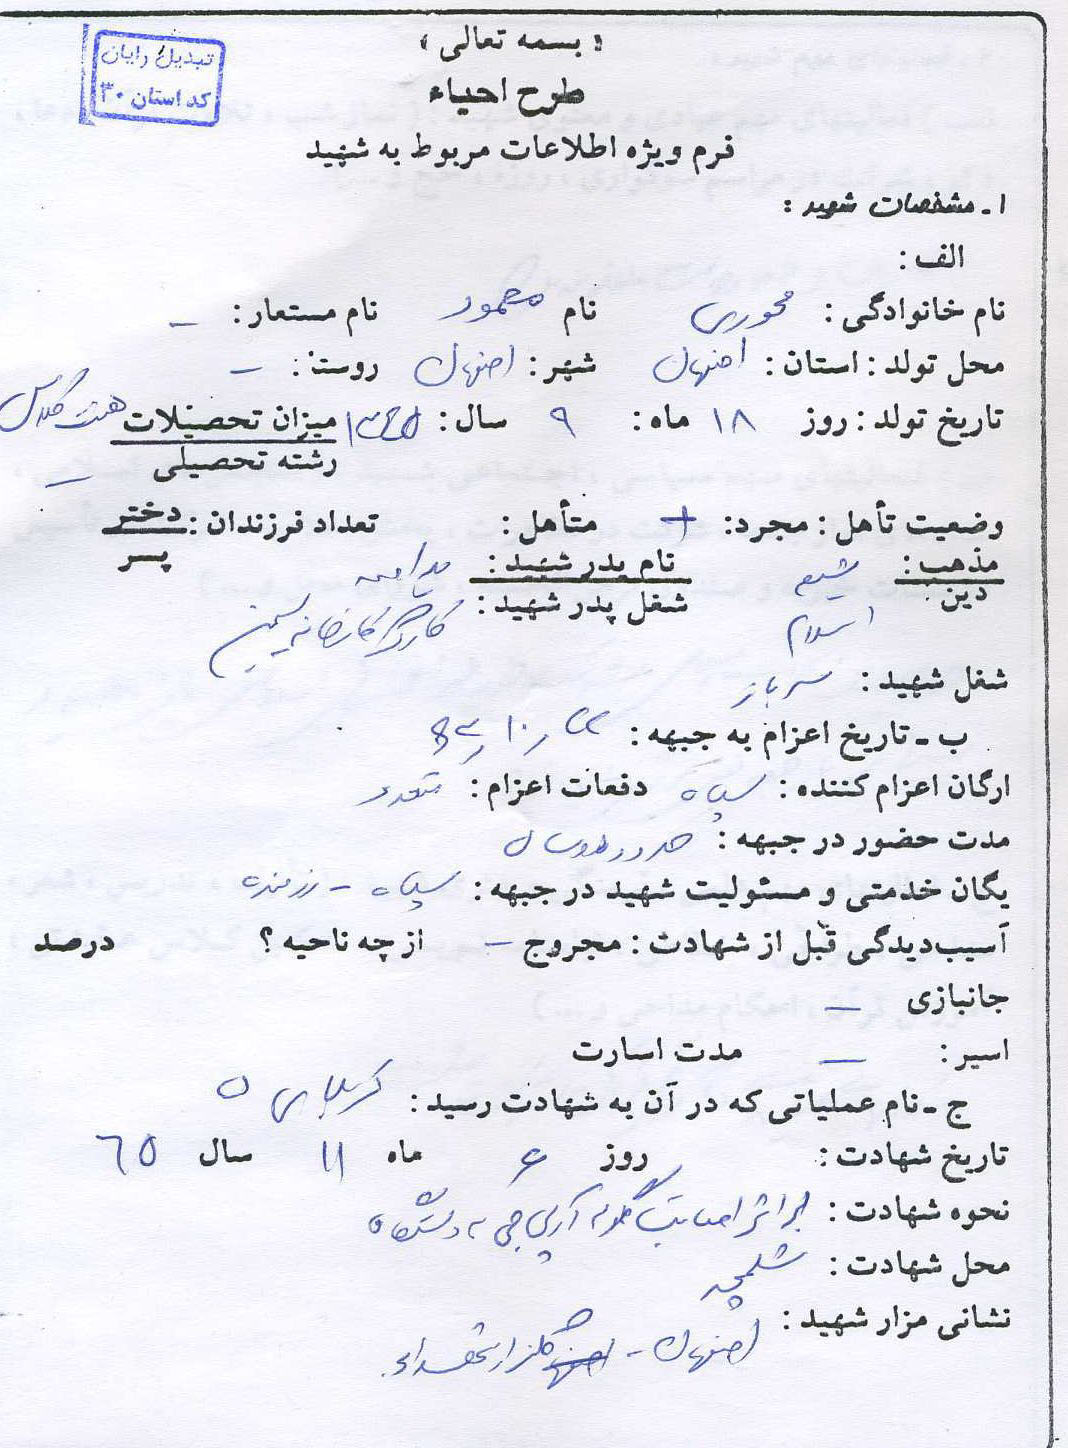 تبدیل رایان
کد استان ۳۰
« بسمه تعالی »
طرح احیاء
فرم ویژه اطلاعات مربوط به شهید
۱ـ مشخصات شهید :
الف :
نام خانوادگی : محوری نام محمود نام مستعار : –
محل تولد : استان : اصفهان شهر : اصفهان روستا : –
تاریخ تولد : روز ۱۸ ماه : ۹ سال : میزان تحصیلات هشت کلاس
رشته تحصیلی –
وضعیت تأهل : مجرد : + متأهل : تعداد فرزندان : دختر
پسر
مذهب : شیعه نام پدر شهید :
دین : اسلام شغل پدر شهید : کارگر کارخانه
شغل شهید : سرباز
ب ـ تاریخ اعزام به جبهه :
ارگان اعزام کننده : سپاه دفعات اعزام : متعدد
مدت حضور در جبهه : حدود دو سال
یگان خدمتی و مسئولیت شهید در جبهه : سپاه – رزمنده
آسیب‌دیدگی قبل از شهادت : مجروح – از چه ناحیه ؟ درصد
جانبازی –
اسیر : – مدت اسارت
ج ـ نام عملیاتی که در آن به شهادت رسید : کربلای ۵
تاریخ شهادت : روز ۶ ماه ۱۱ سال ۶۵
نحوه شهادت : بر اثر اصابت گلوله آرپی جی به دستگاه
محل شهادت : شلمچه
نشانی مزار شهید : اصفهان – گلزار شهداء